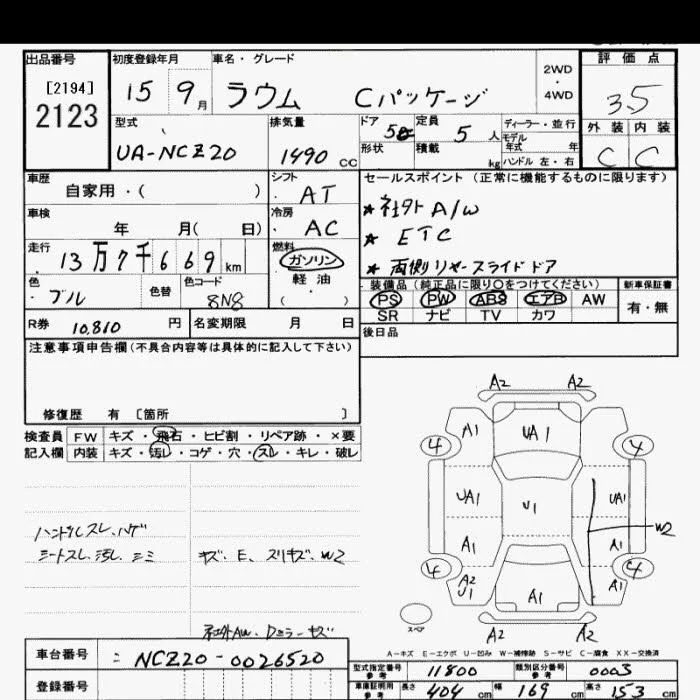 出品番号 初度登録年月 車名・グレード 2WD・4WD 評価点
[2194]
2123
15 9月 ラウム Cパッケージ 3.5
型式 排気量 ドア 5 定員 5人 ディーラー・並行 外装 内装
形状 積載 kg モデル年式 年 ハンドル 左・右
UA-NCZ20 1490 CC C C
車歴 シフト セールスポイント (正常に機能するものに限ります)
自家用・( ) AT
★社外A/W
車検 冷房
年 月( 日) AC
★ ETC
走行 13万7千669km 燃料 ガソリン
★両側リヤースライドドア
色 色替 色コード 軽油
ブル 8N8 ( )
装備品(純正品に限り○をつけてください) 新車保証書
PS PW ABS エアB AW 有・無
SR ナビ TV カワ
R券 10,810 円 名変期限 月 日
後日品
注意事項申告欄(不具合内容等は具体的に記入して下さい)
修復歴 有 〔箇所 〕
検査員 FW キズ・飛石・ヒビ割・リペア跡・×要
記入欄 内装 キズ・汚レ・コゲ・穴・スレ・キレ・破レ
ハンドルスレ、ハゲ
シートスレ、汚レ、シミ
キズ、E、スリキズ、W2
社外AW、Dミラーキズ
A2 A2
A1 UA1
4 4
UA1 U1 UA1
W2
A1 A1
4 4
A2 U1 A1 A1
スペア
A2 A2
A-キズ E-エクボ U-凹み W-補修跡 S-サビ C-腐食 XX-交換済
車台番号 NCZ20-0026520
登録番号
型式指定番号参考 11800 類別区分番号参考 0003
車庫証明用参考 長さ 404 cm 幅 169 cm 高さ 153 cm